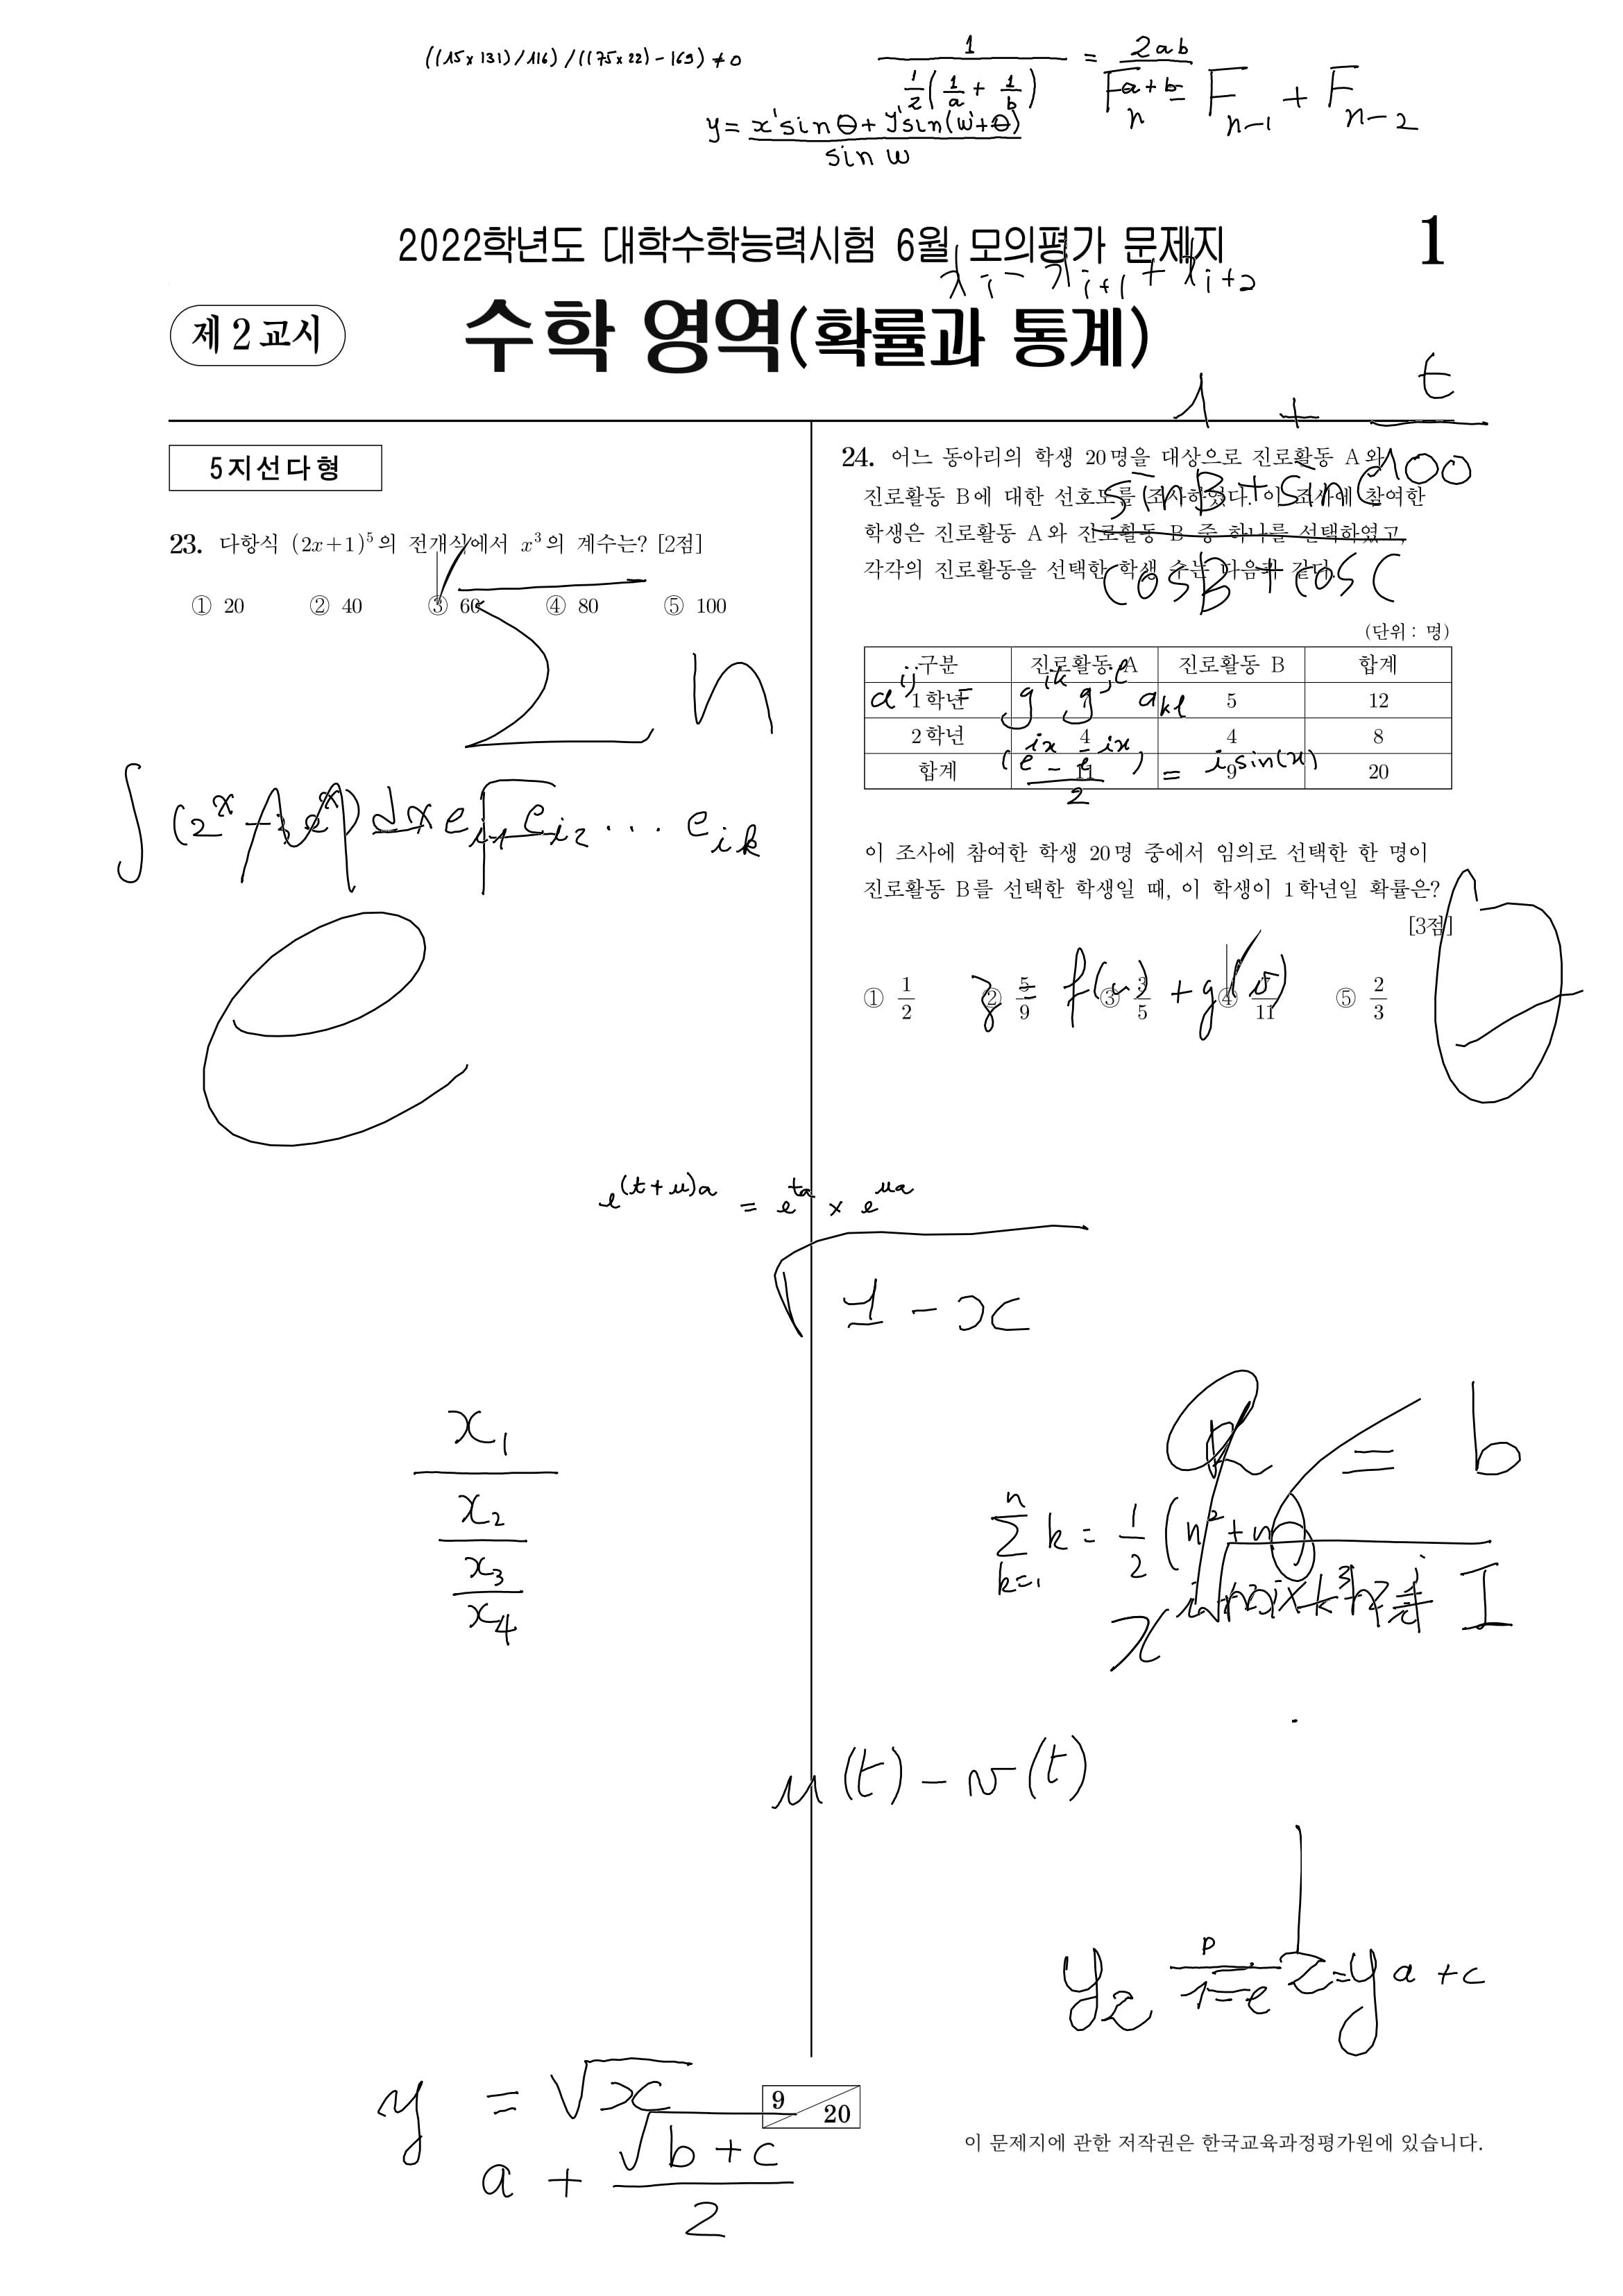 ((15x131)/116)/((75x22)-169)≠0
1/(1/2(1/a + 1/b)) = 2ab/(a+b)
F_n = F_{n-1} + F_{n-2}
y = (x'sinθ + y'sin(w+θ))/sin w
2022학년도 대학수학능력시험 6월 모의평가 문제지
1
λ_i - λ_{i+1} + λ_{i+2}
제 2 교시
수학 영역(확률과 통계)
1 + t/100
5지선다형
23. 다항식 (2x+1)^5의 전개식에서 x^3의 계수는? [2점]
① 20 ② 40 ③ 60 ④ 80 ⑤ 100
Σ n
e_{i1} e_{i2} ... e_{ik}
e
24. 어느 동아리의 학생 20명을 대상으로 진로활동 A와
진로활동 B에 대한 선호도를 조사하였다. 이 조사에 참여한
학생은 진로활동 A와 진로활동 B 중 하나를 선택하였고,
각각의 진로활동을 선택한 학생 수는 다음과 같다.
(sinB + sinC)/(cosB + cosC)
(단위 : 명)
구분 진로활동 A 진로활동 B 합계
1학년 5 12
2학년 4 4 8
합계 11 9 20
a^{ij} = g^{ik} g^{jl} a_{kl}
(e^{ix} - e^{-ix})/2 = i sin(x)
이 조사에 참여한 학생 20명 중에서 임의로 선택한 한 명이
진로활동 B를 선택한 학생일 때, 이 학생이 1학년일 확률은?
[3점]
① 1/2 ② 5/9 ③ 3/5 ④ 7/11 ⑤ 2/3
z = f(u) + g(v)
e^{(t+u)a} = e^{ta} × e^{ua}
√(1-x)
x_1/(x_2/(x_3/x_4))
= b
Σ_{k=1}^{n} k = 1/2 (n^2+n)
u(t) - v(t)
y_2
p/(1-e)
y a + c
y = √x
a + √(b+c)/2
9/20
이 문제지에 관한 저작권은 한국교육과정평가원에 있습니다.